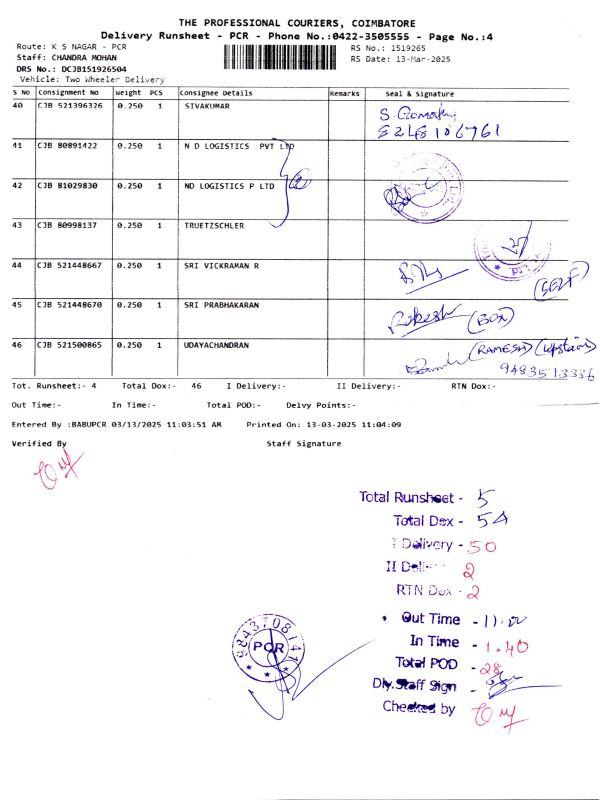 THE PROFESSIONAL COURIERS, COIMBATORE
Delivery Runsheet - PCR - Phone No.:0422-3505555 - Page No.:4
Route: K S NAGAR - PCR
RS No.: 1519265
Staff: CHANDRA MOHAN
RS Date: 13-Mar-2025
DRS No.: DCJB151926504
Vehicle: Two Wheeler Delivery
S No Consignment No Weight PCS Consignee Details Remarks Seal & Signature
40 CJB 521396326 0.250 1 SIVAKUMAR
41 CJB 80891422 0.250 1 N D LOGISTICS PVT LTD
42 CJB 81029830 0.250 1 ND LOGISTICS P LTD
43 CJB 80998137 0.250 1 TRUETZSCHLER
44 CJB 521448667 0.250 1 SRI VICKRAMAN R
(SELF)
45 CJB 521448670 0.250 1 SRI PRABHAKARAN Rakesh (BOX)
46 CJB 521500865 0.250 1 UDAYACHANDRAN (RAMESH) (Upstairs)
9493513336
Tot. Runsheet:- 4 Total Dox:- 46 I Delivery:- II Delivery:- RTN Dox:-
Out Time:- In Time:- Total POD:- Delvy Points:-
Entered By :BABUPCR 03/13/2025 11:03:51 AM Printed On: 13-03-2025 11:04:09
Verified By Staff Signature
Total Runsheet - 5
Total Dex - 54
I Delivery - 50
II Deli 2
RTN Dox - 2
Out Time - 11.00
In Time - 1.40
Total POD - 28
Dly.Staff Sign -
Checked by
9843708141
PCR